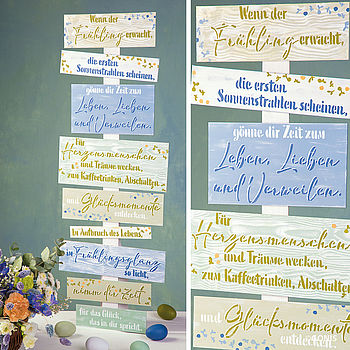 Wenn der
Frühling erwacht,
die ersten
Sonnenstrahlen scheinen,
gönne dir Zeit zum
Leben, Lieben
und Verweilen.
Für
Herzensmenschen
und Träume wecken,
zum Kaffeetrinken, Abschalten
und Glücksmomente
entdecken.
In Aufbruch des Lebens,
im Frühlingsglanz
so licht,
nimm dir Zeit
für das Glück,
das in dir spricht.
Wenn der
Frühling erwacht,
die ersten
Sonnenstrahlen scheinen,
gönne dir Zeit zum
Leben, Lieben
und Verweilen.
Für
Herzensmenschen
und Träume wecken,
zum Kaffeetrinken, Abschalten
und Glücksmomente
entdecken.